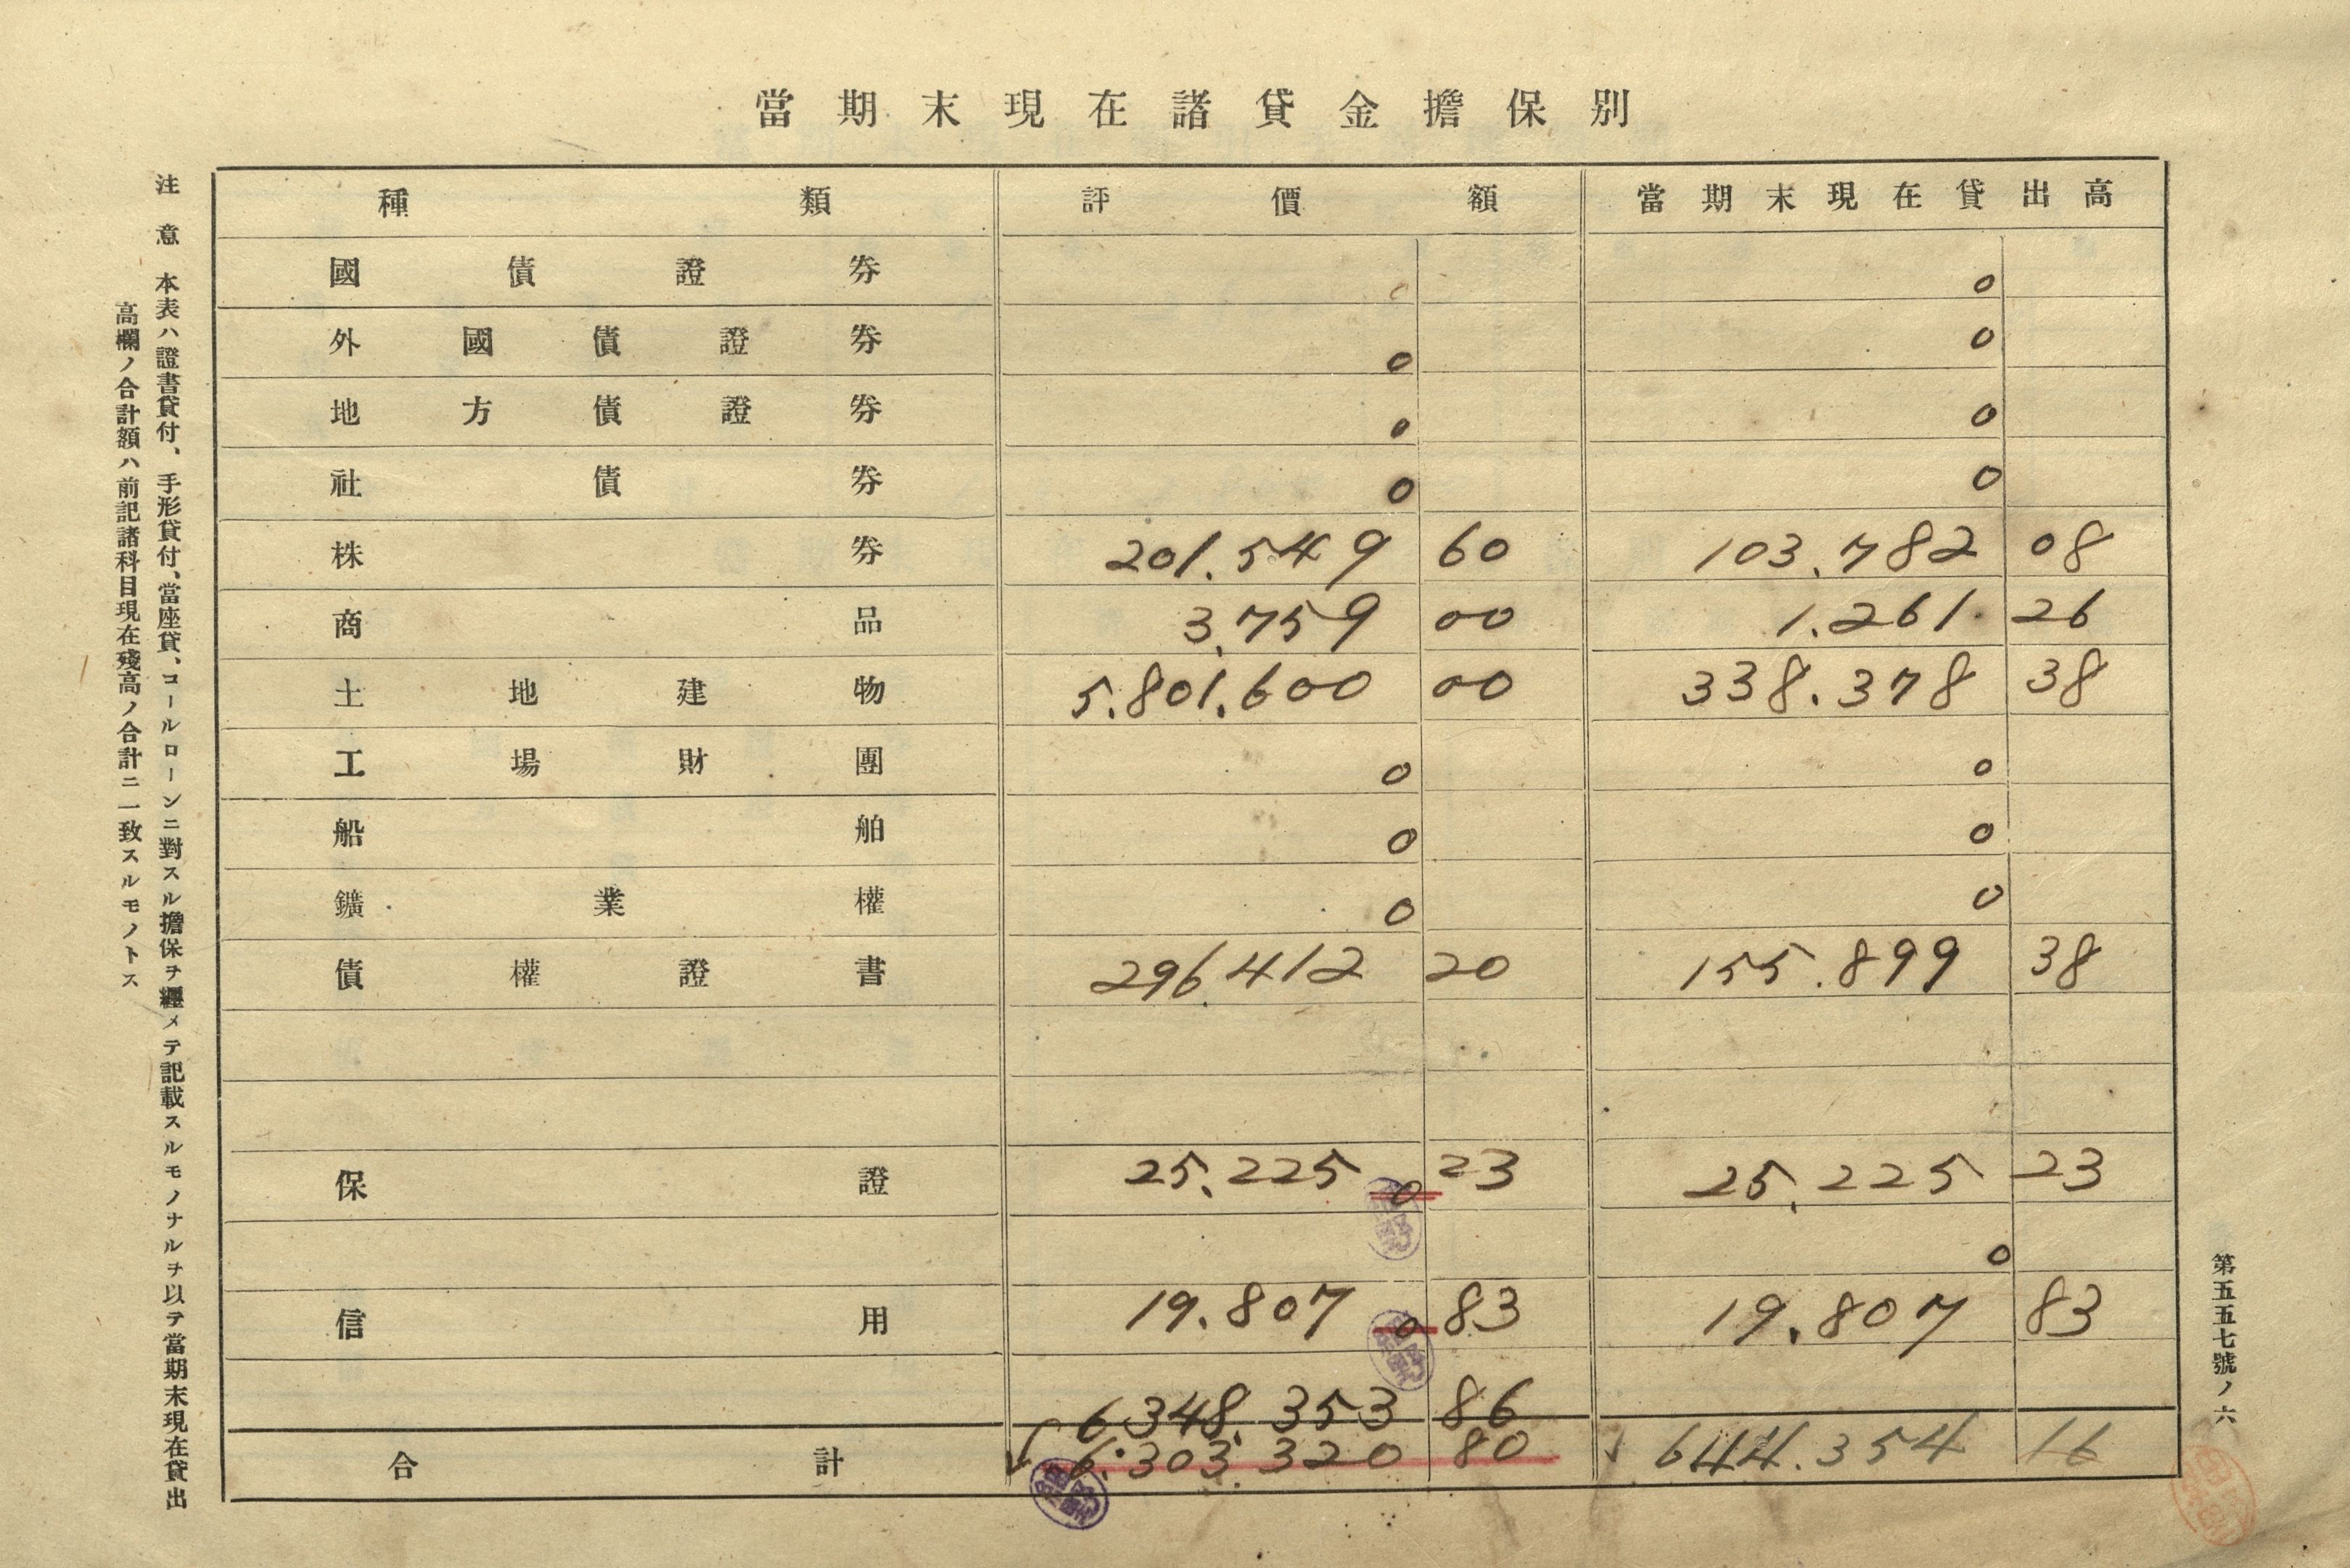 當期末現在諸貸金擔保別
種類 評價額 當期末現在貸出高
國債證券 0 0
外國債證券 0 0
地方債證券 0 0
社債券 0 0
株券 201.549 60 103.782 08
商品 3.759 00 1.261. 26
土地建物 5.801.600 00 338.378 38
工場財團 0 0
船舶 0 0
鑛業權 0 0
債權證書 296.412 20 155.899 38
保證 25.225 0 23 25.225 23
0
信用 19.807 0 83 19.807 83
6.348.353 86
合計 6.303.320 80 644.354 16
注意 本表ハ證書貸付、手形貸付、當座貸、コールローンニ對スル擔保ヲ纒メテ記載スルモノナルヲ以テ當期末現在貸出
高欄ノ合計額ハ前記諸科目現在殘高ノ合計ニ一致スルモノトス
第五五七號ノ六